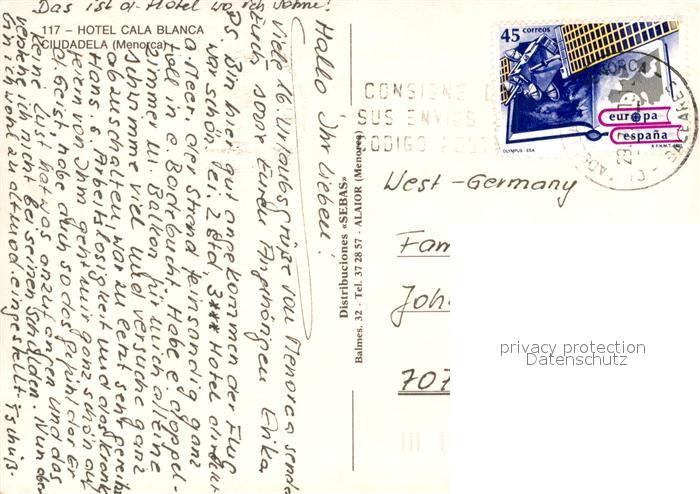 Das ist d. Hotel wo ich wohne!
117 – HOTEL CALA BLANCA
CIUDADELA (Menorca)
Hallo Ihr Lieben!
Viele lb. Urlaubsgrüße von Menorca sendet
Euch sowie Euren Angehörigen Erika
PS. Bin hier gut angekommen der Flug
war schön bei. 2 Std, 3*** Hotel direkt
a. Meer, der Strand feinsandig ganz
toll in e. Badebucht. Habe e. Doppel-
zimmer m. Balkon für mich alleine
Schwimme viel und versuche ganz
abzuschalten, war zu letzt sehr gereizt
Hans. s. Arbeitslosigkeit und das Krank
sein von Ihm geht mir ganz schön auf
d. Geist, habe auch so das Gefühl der Er
keine Lust hat was anzufangen und das
verstehe ich nicht bei seinen Schulden. Nun da
bin ich wohl zu altmod. eingestellt. Tschüß.
Distribuciones «SEBAS»
Balmes, 32 - Tel. 37 28 57 - ALAIOR (Menorca)
45 correos
europa
españa
OLYMPUS-ESA
F.N.M.T.
CONSIGNE
SUS ENVIOS
CODIGO POST
BALEARES
West-Germany
Fam
Joh
707
privacy protection